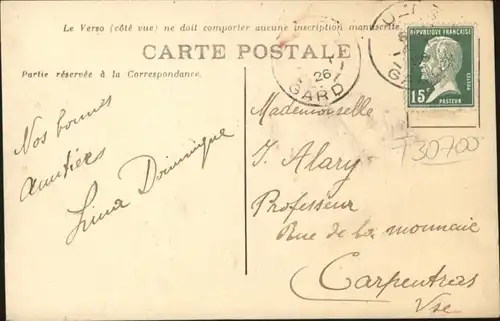 Le Verso (côté vue) ne doit comporter aucune inscription manuscrite.
CARTE POSTALE
Partie réservée à la Correspondance.
Nos bonnes
amitiés
Dominique
26
GARD
REPUBLIQUE FRANÇAISE
POSTES
15c
PASTEUR
Mademoiselle
J. Alary
Professeur
Rue de la monnaie
Carpentras
Vse
T30700